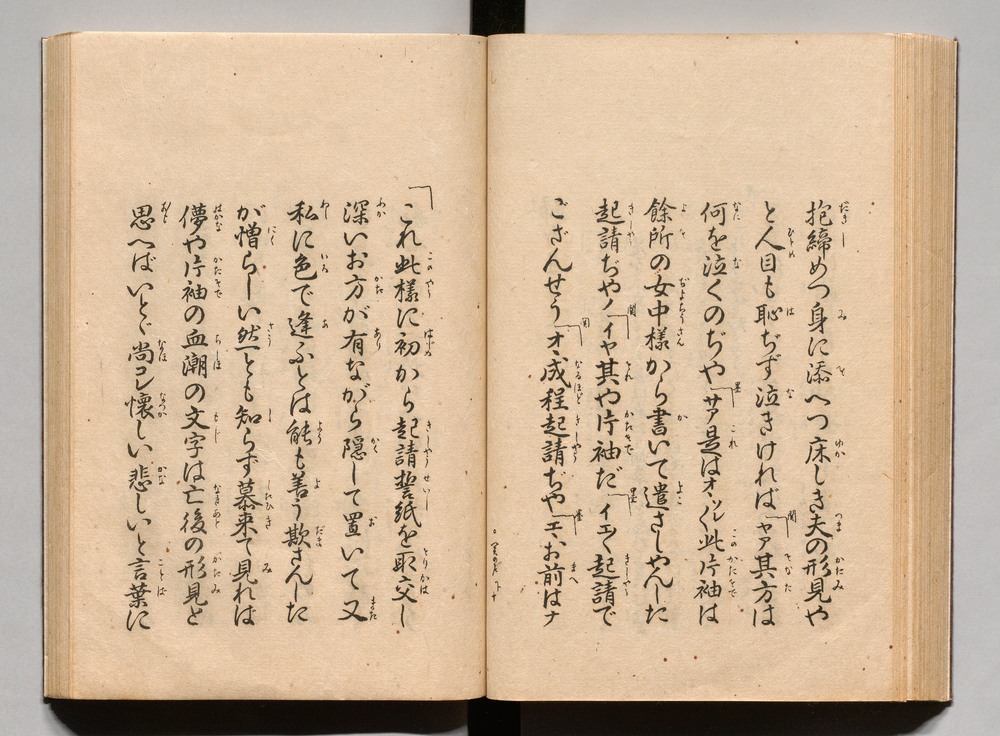 抱締めつ身に添へつ床しき夫の形見や
と人目も恥ぢず泣きければ「ヤア其方は
何を泣くのぢや「サア是はオヽソレ〳〵此片袖は
餘所の女中樣から書いて遣さしやんした
起請ぢやノ「イヤ其や片袖だ「イエ〳〵起請で
ござんせう「オヽ成程起請ぢや「エヽお前はナ
「これ此樣に初から起請誓紙を取交し
深いお方が有ながら隱して置いて又
私に色で逢ふとは能も善う欺さんした
が憎らしい然とも知らず慕來て見れは
儚や片袖の血潮の文字は亡後の形見と
思へばいとゞ尚コレ懷しい悲しいと言葉に